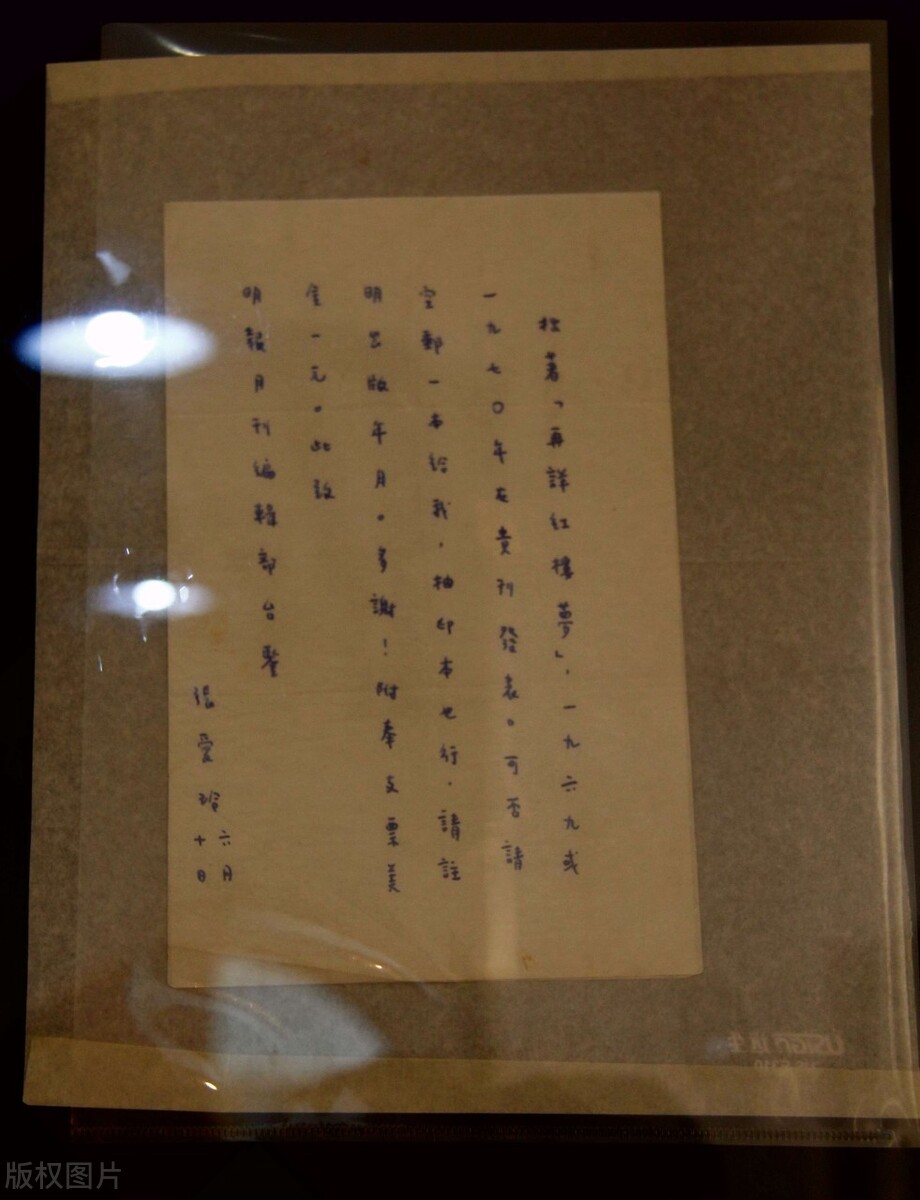 拙著「再詳紅樓夢」，一九六九或
一九七〇年在貴刊發表。可否請
空郵一本給我，抽印本也行，請註
明出版年月。多謝！附奉支票美
金一元。此致
明報月刊編輯部台鑒
張愛玲
六月
十日
版权图片